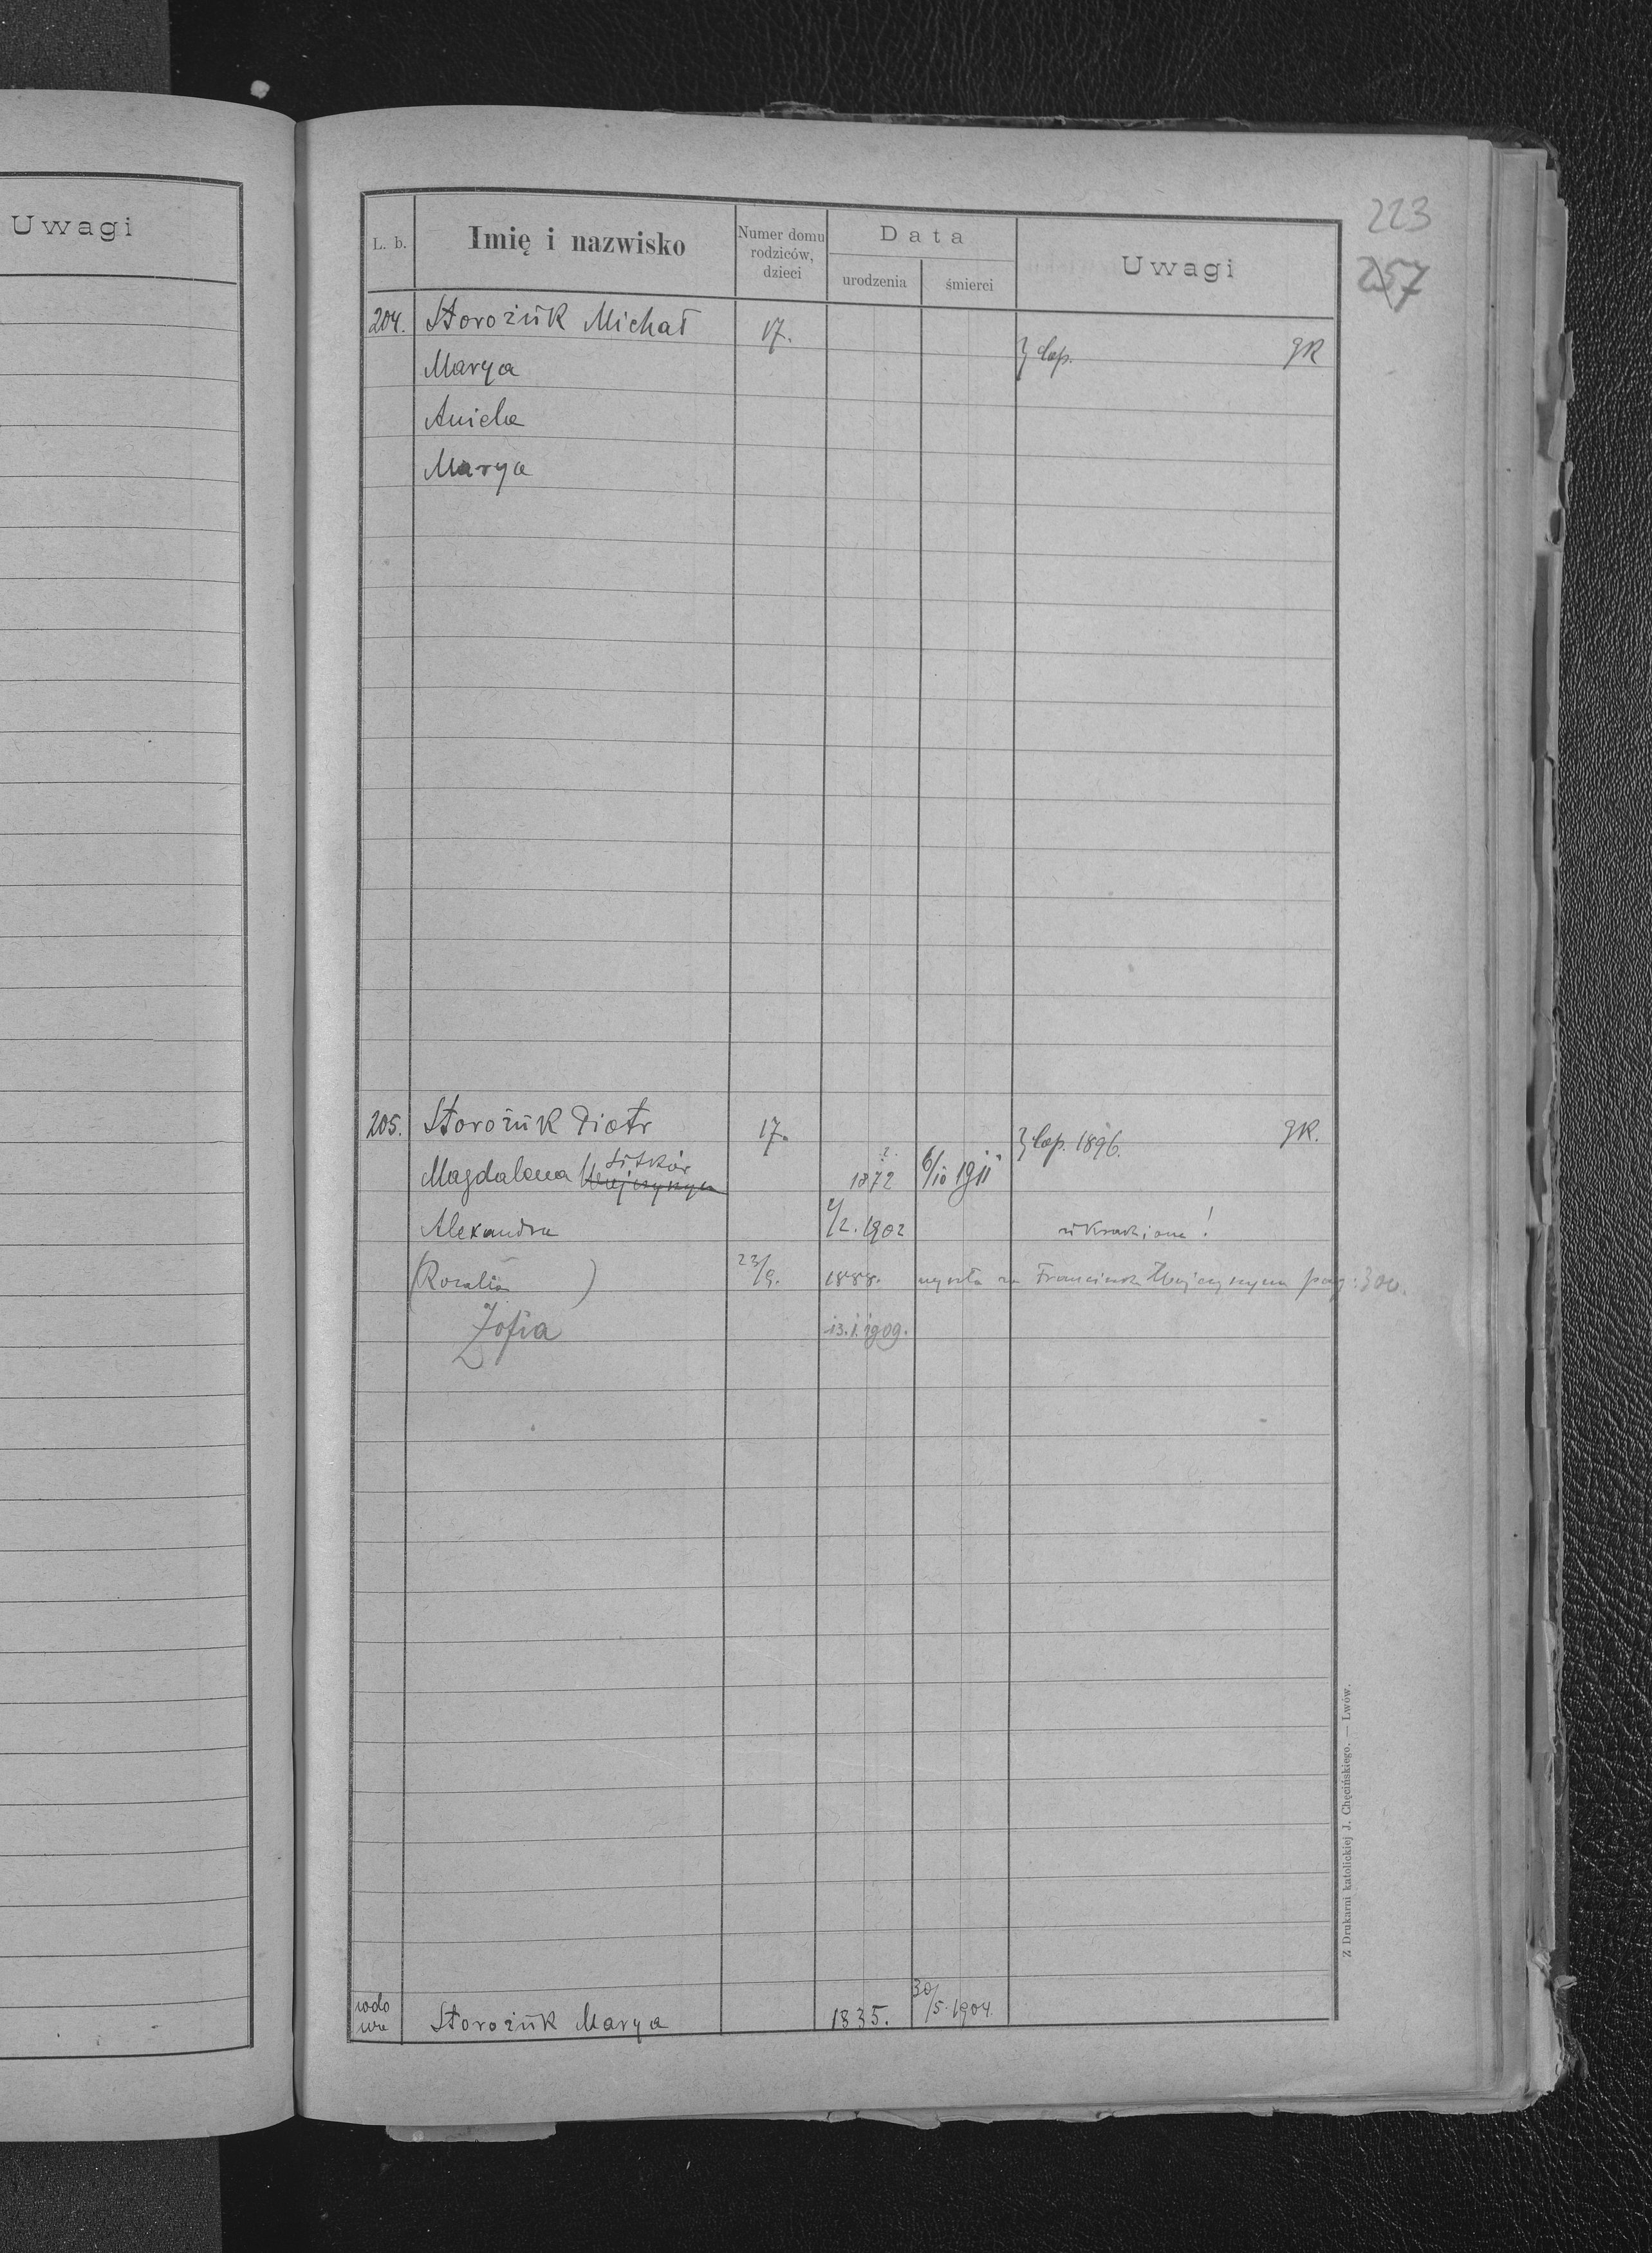 Uwagi
223
257
L. b.
Imię i nazwisko
Numer domu rodziców, dzieci
Data
urodzenia
śmierci
Uwagi
204. Storożuk Michał 17. } cop. gR
Marya
Aniela
Marya
205. Storożuk Piotr 17. } cop. 1896. gR.
Sitkór
Magdalena 1872 6/10 1911
Alexandra 2/2. 1902 ukradziona!
(Rozalia) 23/9. 1888. wyszła za Franciszka pag: 300.
Zofia 13. I. 1909.
wdowa Storożuk Marya 1835. 30/5. 1904.
Z Drukarni katolickiej J. Chęcińskiego. — Lwów.